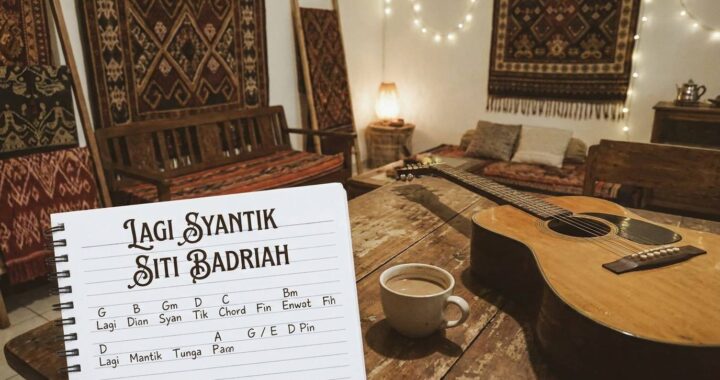 LAGI SYANTIK
SITI BADRIAH
G B Gm D C Bm
Lagi Dian Syan Tik Chord Fin Enwat Fih
D A G / E D Pin
Lagi Mantik Tunga Pacn